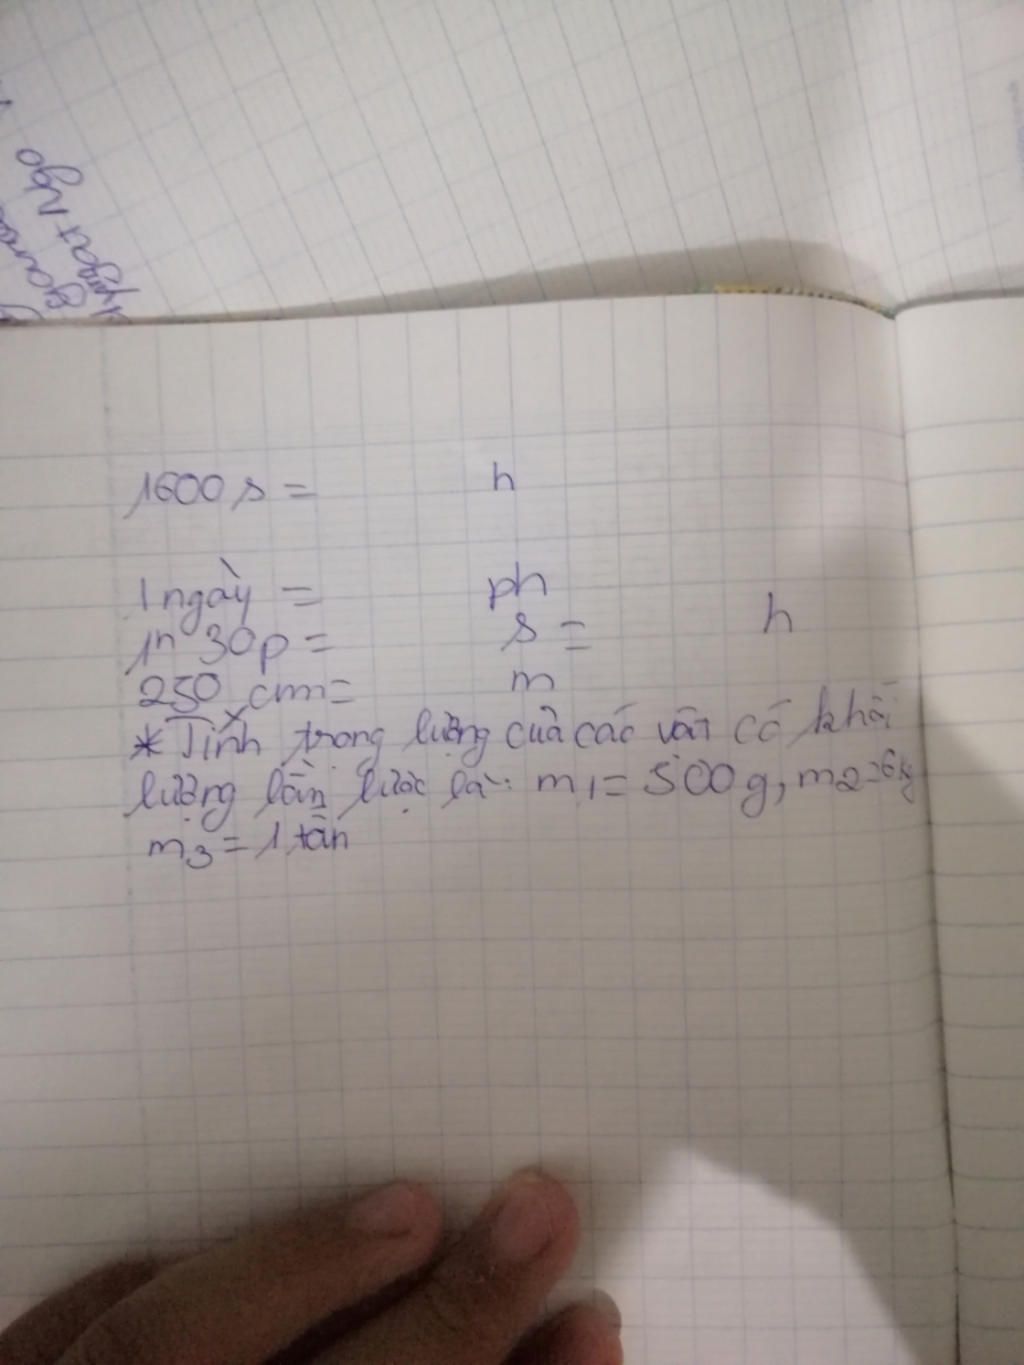 Ngo
1600 s =    h
1 ngày =    ph
1h 30p =    s =    h
250 cm =    m
* Tính trọng lượng của các vật có khối
lượng lần lược là: m1 = 500g, m2 = 6kg
m3 = 1 tấn